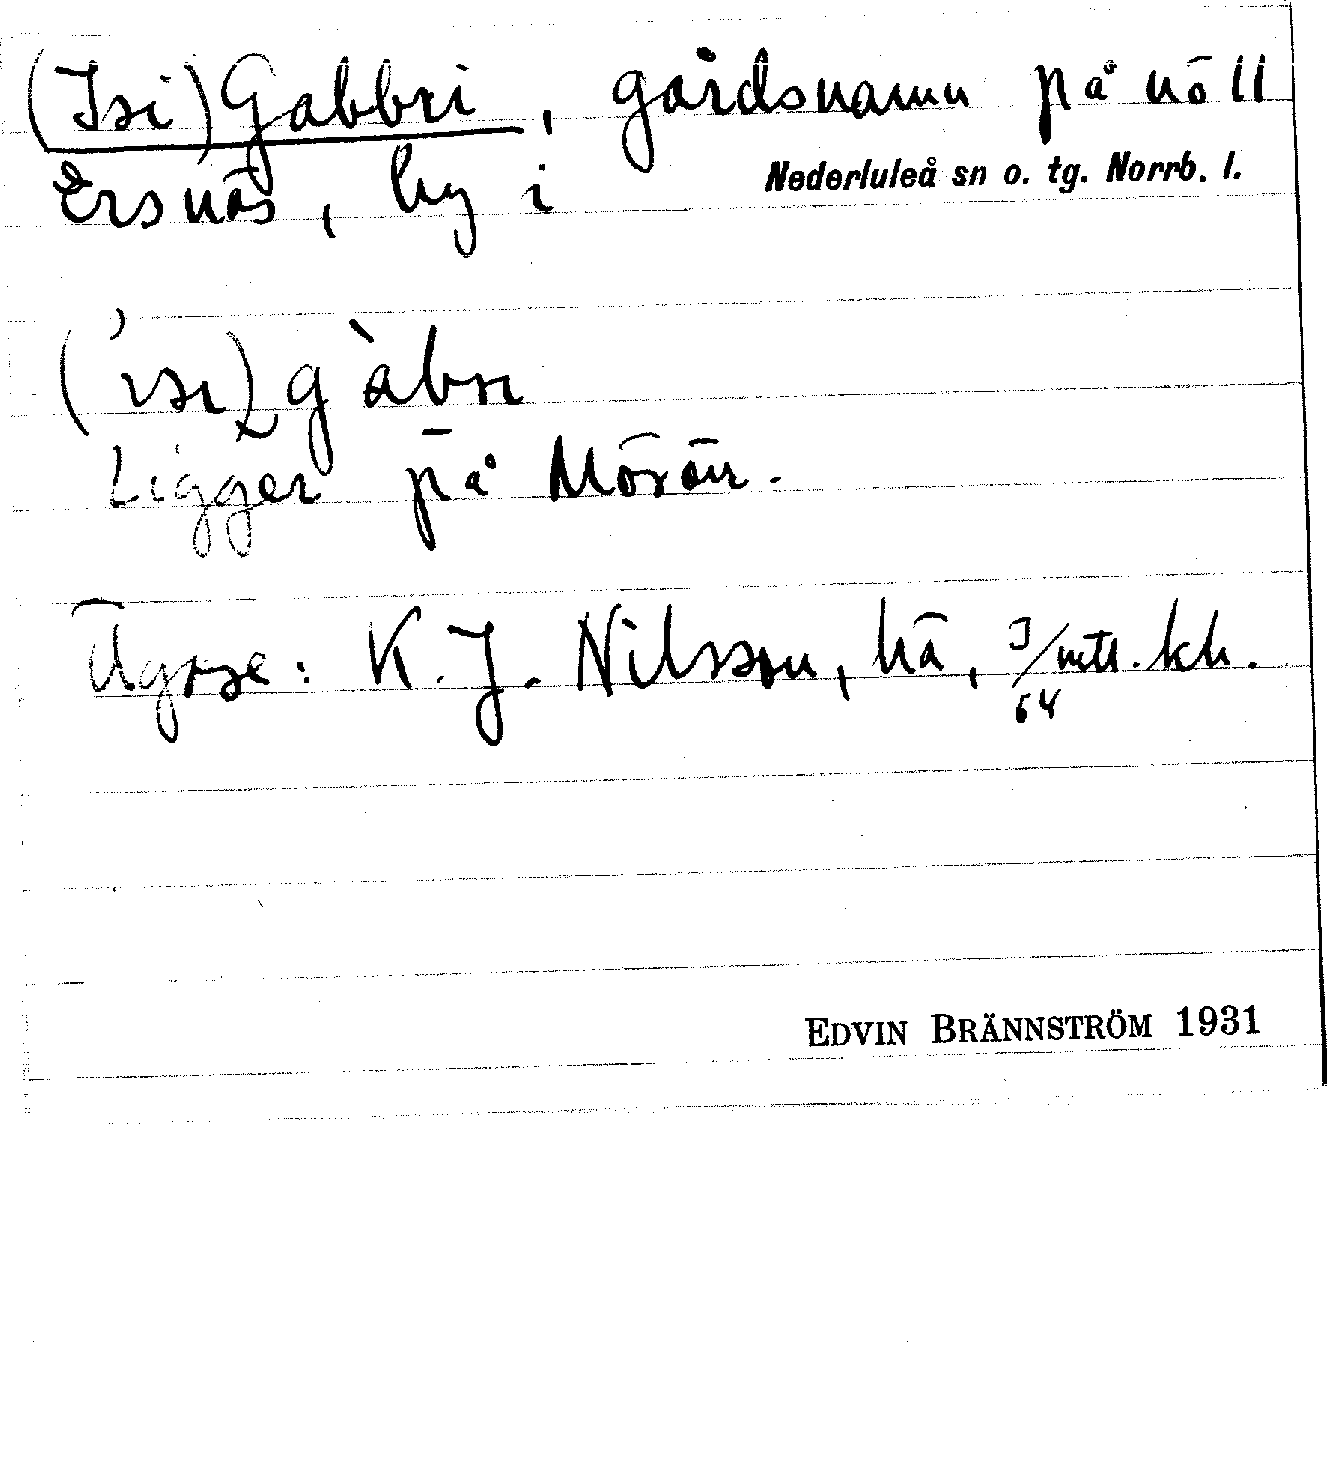 (Isi)Gabbri, gårdsnamn på nö 11
Ersnäs, by i Nederluleå sn o. tg. Norrb. l.
Ligger på Mörön.
Ägare: K. J. Nilsson, hä, 3/64 mtl. kh.
EDVIN BRÄNNSTRÖM 1931